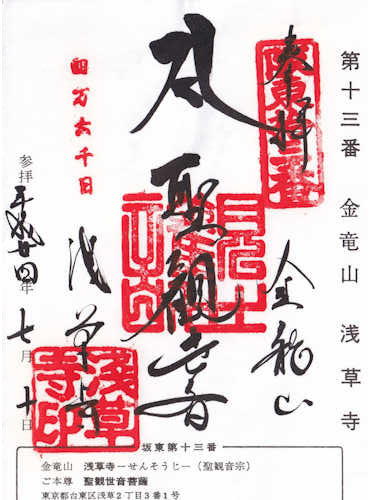 第十三番 金竜山 浅草寺
奉拝
坂東十三番
金龍山
聖観音
四万六千日
浅草寺
参拝 平成廿四年 七月 十日
浅草寺印
坂東第十三番
金竜山 浅草寺ーせんそうじー（聖観音宗）
ご本尊 聖観世音菩薩
東京都台東区浅草2丁目3番1号